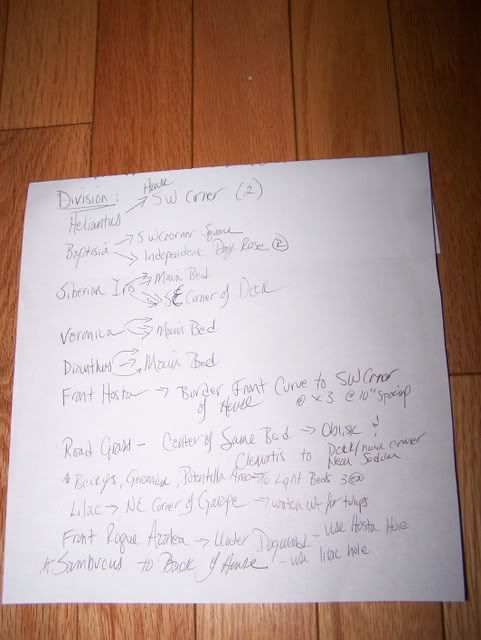 Division:
House
Heliantus → SW Corner (2)
Baptisia → SW Corner Square
→ Independent Day Rose (R)
Siberian Iris → Main Bed
→ SE Corner of Deck
Veronica → Main Bed
Dianthus → Main Bed
Front Hosta → Border Front Curve to SW Corner
of House @ x 3 @ 10" Spacing
Road Grass - Center of Same Bed → Oblisk &
Clematis to Deck/ corner
Near Sedum
* Beckys, Geranium, Potentilla To Light Beds 3
Lilac → NE Corner of Garage → watch out for tulips
Front Rogue Azalea → Under Dogwood - use Hosta Hole
* Sambucus to Back of House - use lilac hole